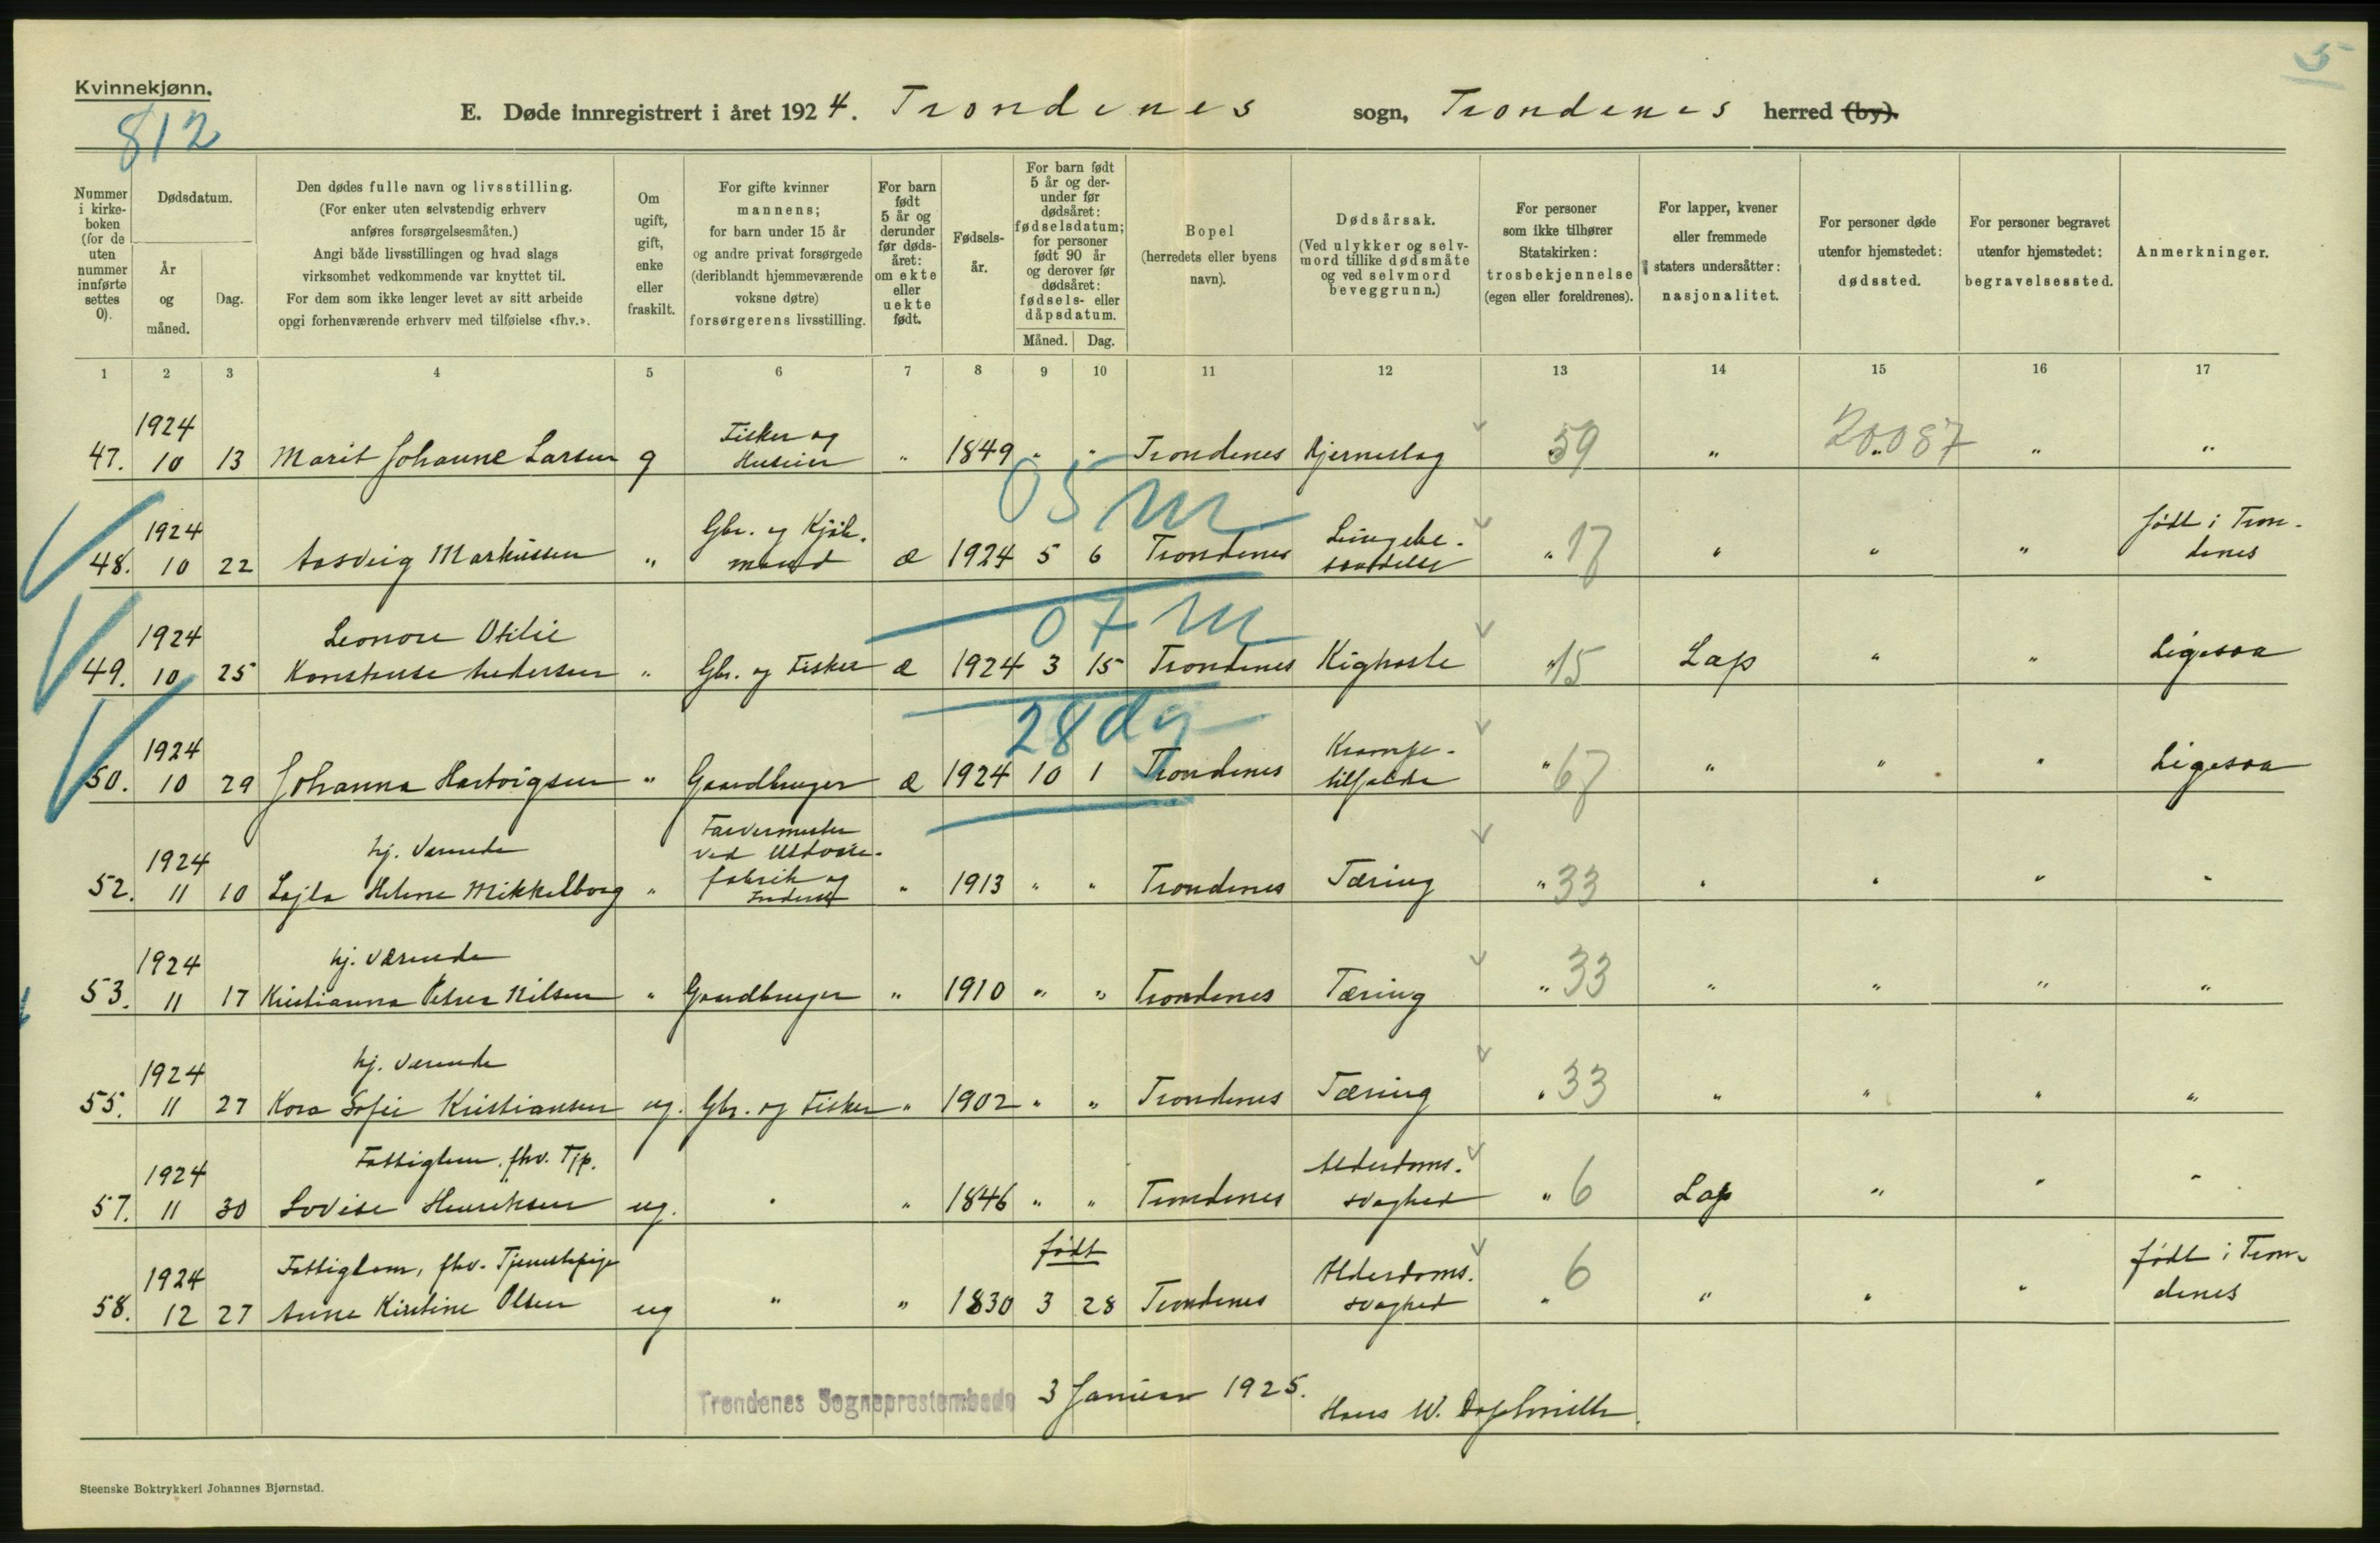 5
Kvinnekjønn.
812
E. Døde innregistrert i året 1924. Trondenes sogn, Trondenes herred (by).
Nummer i kirke-boken (for de uten nummer innførte settes 0).
Dødsdatum.
År og måned.
Dag.
Den dødes fulle navn og livsstilling.
(For enker uten selvstendig erhverv
anføres forsørgelsesmåten.)
Angi både livsstillingen og hvad slags
virksomhet vedkommende var knyttet til.
For dem som ikke lenger levet av sitt arbeide
opgi forhenværende erhverv med tilføielse «fhv.».
Om
ugift,
gift,
enke
eller
fraskilt.
For gifte kvinner
mannens;
for barn under 15 år
og andre privat forsørgede
(deriblandt hjemmeværende
voksne døtre)
forsørgerens livsstilling.
For barn
født
5 år og
derunder
før døds-
året:
om ekte
eller
uekte
født.
Fødsels-
år.
For barn født
5 år og der-
under før
dødsåret:
fødselsdatum;
for personer
født 90 år
og derover før
dødsåret:
fødsels- eller
dåpsdatum.
Måned. Dag.
Bopel
(herredets eller byens
navn).
Dødsårsak.
(Ved ulykker og selv-
mord tillike dødsmåte
og ved selvmord
beveggrunn.)
For personer
som ikke tilhører
Statskirken:
trosbekjennelse
(egen eller foreldrenes).
For lapper, kvener
eller fremmede
staters undersåtter:
nasjonalitet.
For personer døde
utenfor hjemstedet:
dødssted.
For personer begravet
utenfor hjemstedet:
begravelsessted.
Anmerkninger.
1 2 3 4 5 6 7 8 9 10 11 12 13 14 15 16 17
1924 Fisker og
47. 10 13 Marit Johanne Larsen g Huseier " 1849 " " Trondenes Hjerneslag 59 " 20087 " "
05 m
1924 Gbr. og Kjøb. Lungebe- født i Tron-
48. 10 22 Aasveig Markussen " mand æ 1924 5 6 Trondenes " 17 " " " denes
07 m
1924 Leonore Otilie
49. 10 25 Konstanse Pedersen " Gbr. og Fisker æ 1924 3 15 Trondenes Kighoste " 15 Lap " " Ligesaa
28 dg
1924 Krampe-
50. 10 29 Johanna Hartvigsen " Gaardbruger æ 1924 10 1 Trondenes tilfælde " 67 " " " Ligesaa
1924 hj. værende Farvermester ved Uldvare-
fabrik og
52. 11 10 Lajla Helene Mikkelborg " " 1913 " " Trondenes Tæring " 33 " " " "
1924 hj. værende
53. 11 17 Kristianna Petrea Nilsen " Gaardbruger " 1910 " " Trondenes Tæring " 33 " " " "
1924 hj. værende
55. 11 27 Kora Sofie Kristiansen ug. Gbr. og Fisker " 1902 " " Trondenes Tæring " 33 " " " "
1924 Fattiglem, fhv. Tjp. Alderdoms-
57. 11 30 Lovise Henriksen ug. " " 1846 " " Trondenes svaghed " 6 Lap " " "
1924 Fattiglem, fhv. Tjenestepige født Alderdoms- født i Tron-
58. 12 27 Anne Kirstine Olsen ug " " 1830 3 28 Trondenes svaghed " 6 " " " denes
Trondenes Sogneprestembede 3 Januar 1925.
Hans W.
Steenske Boktrykkeri Johannes Bjørnstad.